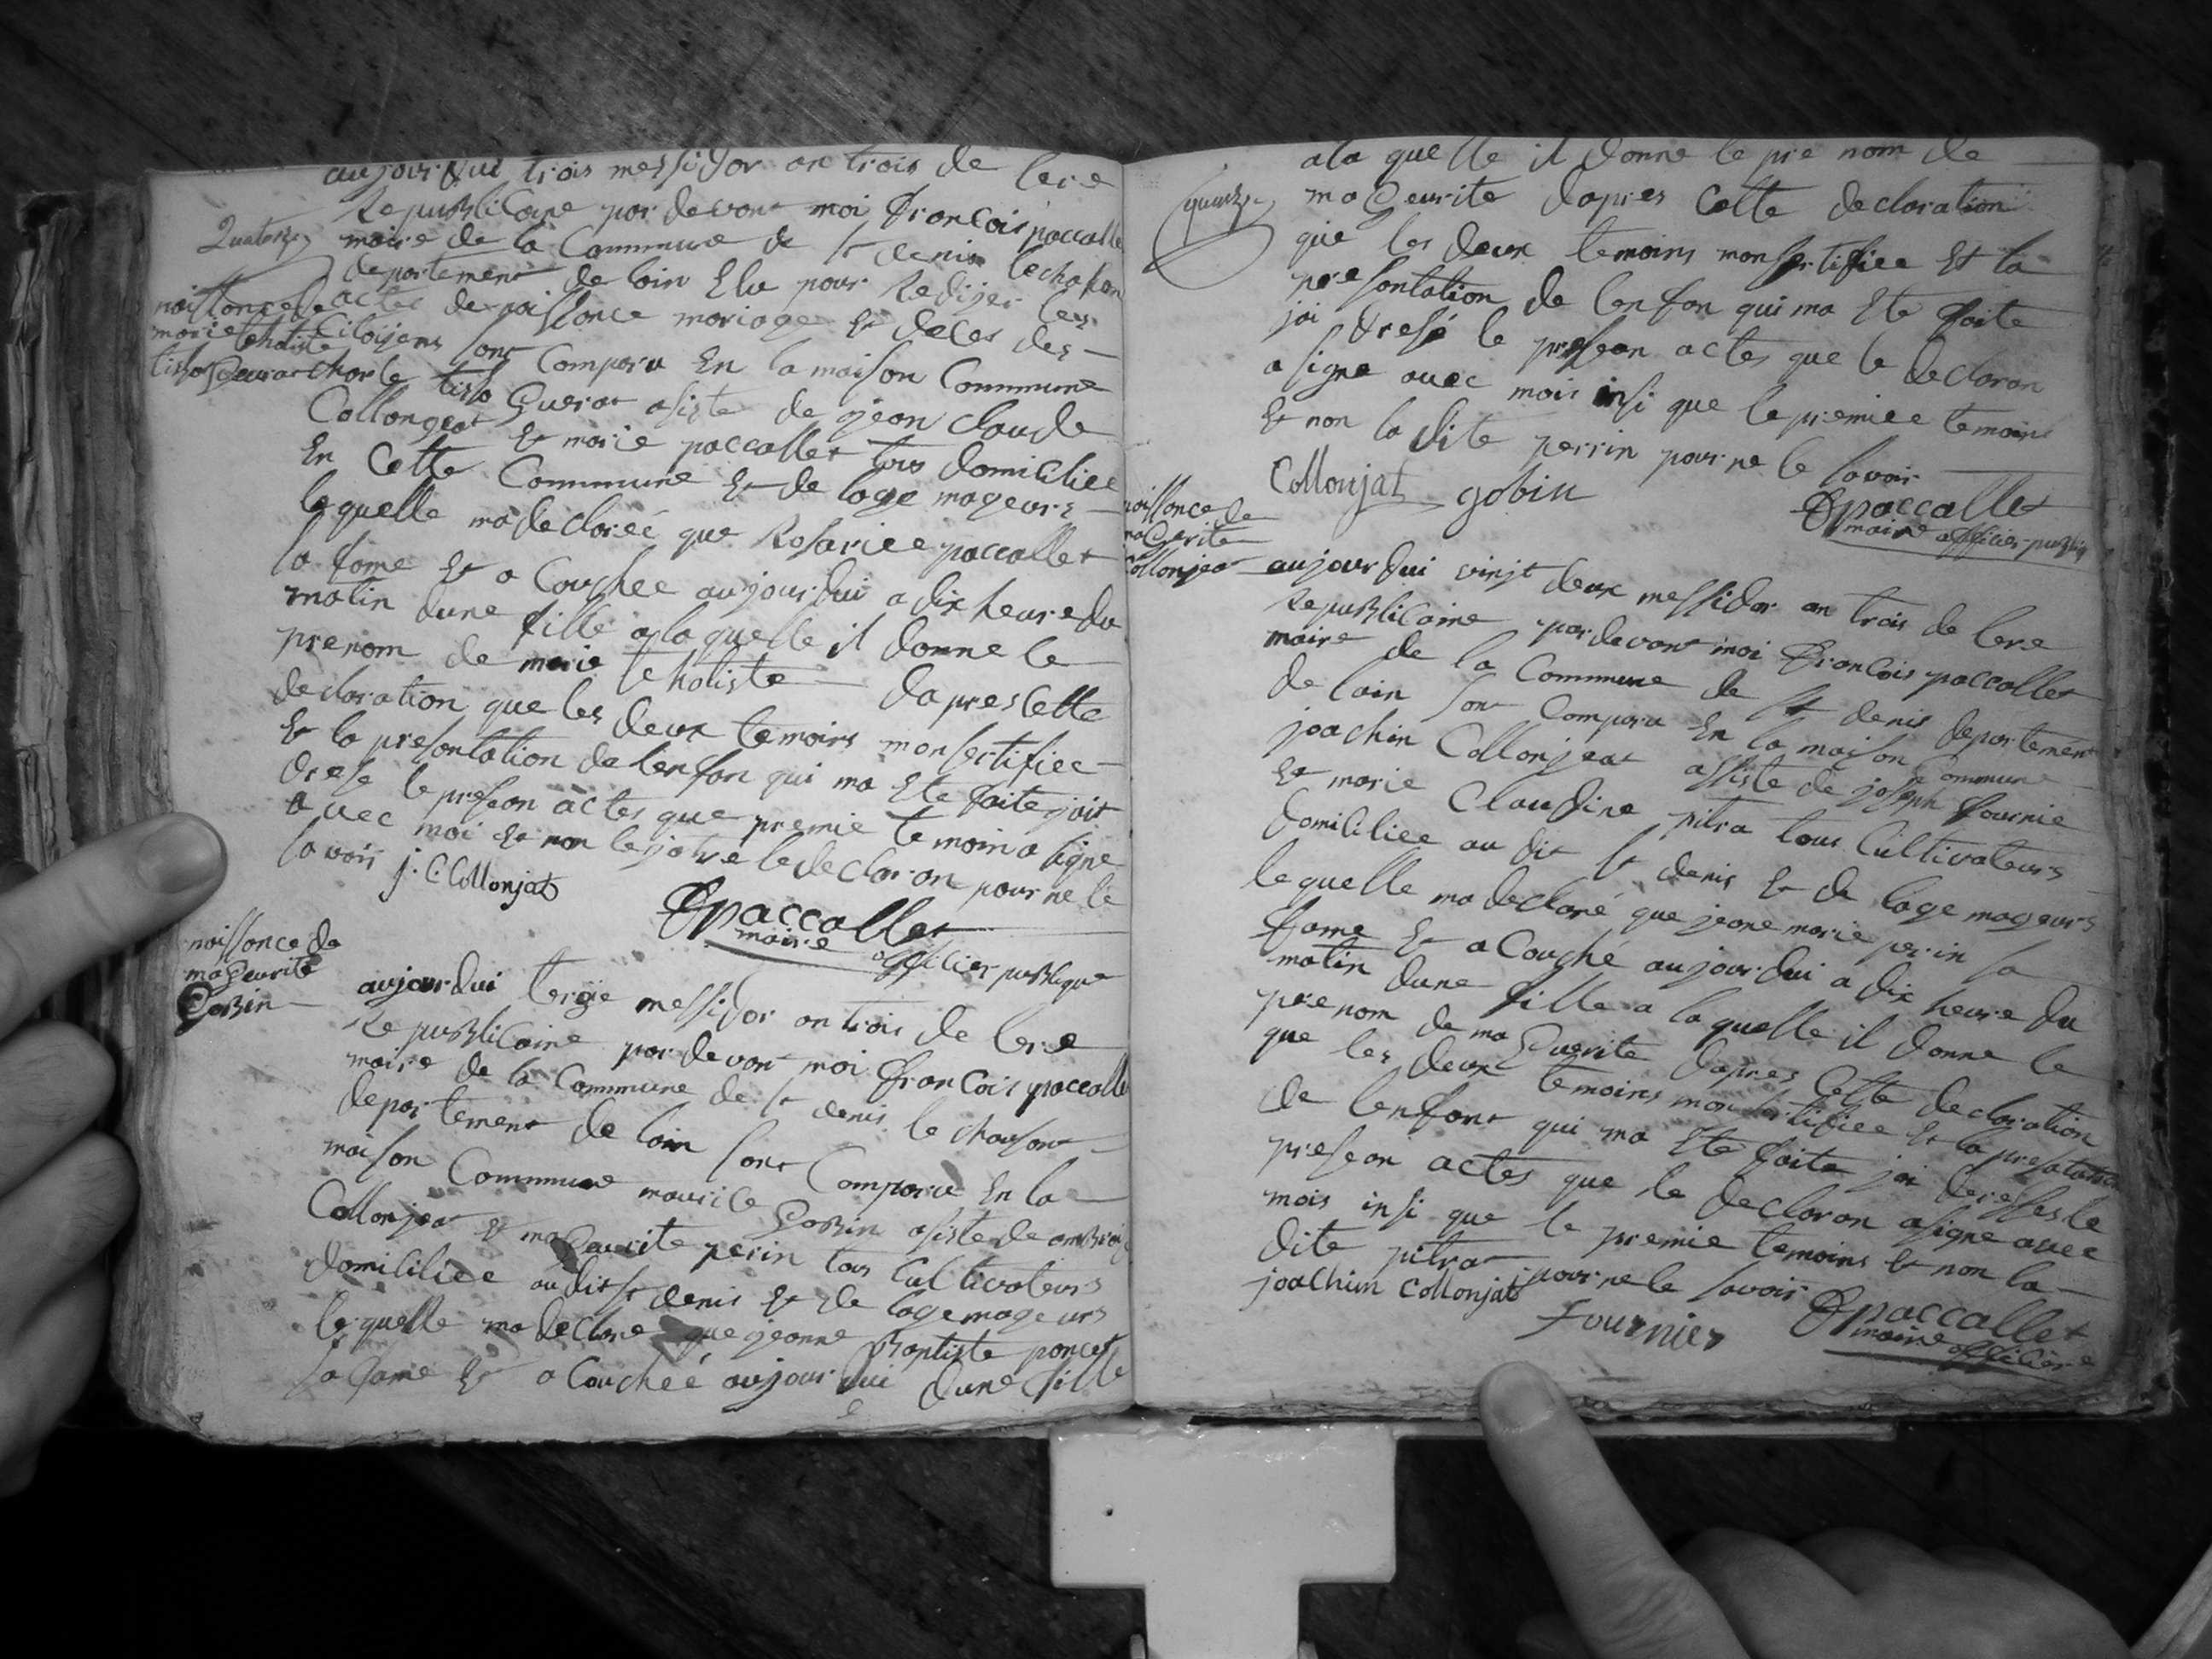 aujourdui trois messidor an trois de lere
Quatorze
Republicaine par devant moi francois paccallet
maire de la Commune de st denis lechoson
departement de loin Elu pour Rediger les
actes de naissance mariage et deces des
naissance de
marie
tisso Guerat
Citoyens sont Comparu En la maison Commune
Charle tisso Guerat asiste de jean Claude
Collongeat Et marie paccallet tous domicilice
En Cette Commune Et de lage mageurs
lequelle ma declareé que Rosariee paccallet
la fame Et a Couchee aujourdui a dix heure du
matin dune fille a laquelle il donne le
prenom de marie dapres Cette
declaration que les deux temoins mon sertifiee
Et la presontation de lenfan qui ma Ete faite jait
drese le presean actes que premie temoin a signe
avec moi Et non le declaran pour ne le
savoir j. C. Collonjat
fpaccallet
maire officier publique
naissance de
magurite
Gobin
aujourdui terze messidor an trois de lere
Republicaine par devant moi francois paccallet
maire de la Commune de st denis le chauson
departement de loin sont Comparu En la
maison Commune maurice Gobin asiste de ambroi
Collonjeat Et magurite perin tous Cultivateurs
domicilice audit st denis Et de lage mageurs
lequelle ma declare que jeanne Baptiste poncet
sa fame Et a Couchéé aujourdui dune fille
quinze
ala quelle il donne le pre nom de
magurite dapres Cette declaration
que les deux temoins mon sertifiee Et la
presontation de lenfan qui ma Ete faite
jai dresé le presean actes que le declaron
a signe avec moi insi que le premiee temoin
Et non la dite perrin pour ne le savoir
Collonjat gobin
fpaccallet
maire officier public
naissance de
magurite
Collonjeat
aujourdui vinjt deux messidor an trois de lere
Republicaine par devant moi francois paccallet
maire de la Commune de st denis departement
de lain sont Comparu En la maison Commune
joachin Collonjeat assiste de joseph fournie
Et marie Claudine pitra tous Cultivateurs
domicilice au dit st denis Et de lage mageurs
lequelle ma declaré que jeane marie perin sa
fame Et a Couché aujourdui a dix heure du
matin dune fille a laquelle il donne le
prenom de magurite dapres Cette declaration
que les deux temoins mon sertifiee Et la presatation
de lenfant qui ma Ete faite jai deresses le
presean actes que le declaron a signe avec
mois insi que le premie temoins Et non la
dite pitrat pour ne le savoir
joachim Collonjat
fournier
fpaccallet
maire officier